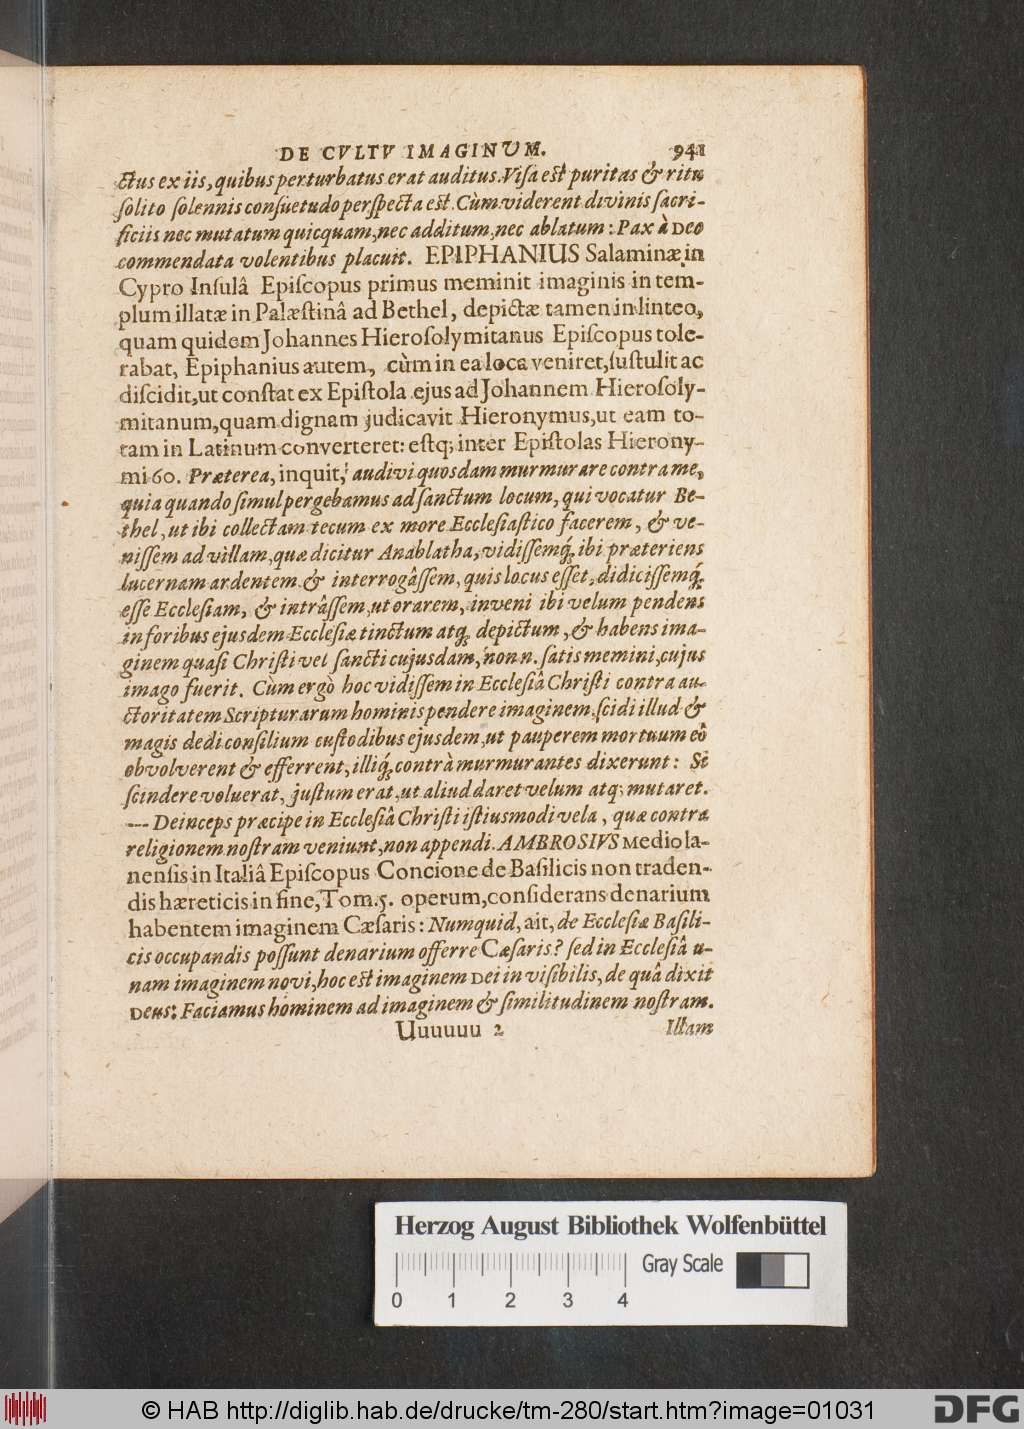 DE CVLTV IMAGINUM. 941
ctus ex iis, quibus perturbatus erat auditus. Visa est puritas & ritu
solito solennis consuetudo perspecta est. Cùm viderent divinis sacri-
ficiis nec mutatum quicquam, nec additum, nec ablatum: Pax à DEO
commendata volentibus placuit. EPIPHANIUS Salaminæ in
Cypro Insulâ Episcopus primus meminit imaginis in tem-
plum illatæ in Palæstinâ ad Bethel, depictæ tamen in linteo,
quam quidem Johannes Hierosolymitanus Episcopus tole-
rabat, Epiphanius autem, cùm in ea loca veniret, sustulit ac
discidit, ut constat ex Epistola ejus ad Johannem Hierosoly-
mitanum, quam dignam judicavit Hieronymus, ut eam to-
tam in Latinum converteret: estq; inter Epistolas Hierony-
mi 60. Præterea, inquit, audivi quosdam murmurare contra me,
quia quando simul pergebamus ad sanctum locum, qui vocatur Be-
thel, ut ibi collectam tecum ex more Ecclesiastico facerem, & ve-
nissem ad villam, quæ dicitur Anablatha, vidissemq́; ibi præteriens
lucernam ardentem & interrogâssem, quis locus esset, didicissemq́;
esse Ecclesiam, & intrâssem, ut orarem, inveni ibi velum pendens
in foribus ejusdem Ecclesiæ tinctum atq; depictum, & habens ima-
ginem quasi Christi vel sancti cujusdam, non n. satis memini, cujus
imago fuerit. Cùm ergò hoc vidissem in Ecclesiâ Christi contra au-
ctoritatem Scripturarum hominis pendere imaginem, scidi illud &
magis dedi consilium custodibus ejusdem, ut pauperem mortuum eô
obvolverent & efferrent, illiq́; contrà murmurantes dixerunt: Si
scindere voluerat, justum erat, ut aliud daret velum atq; mutaret.
--- Deinceps præcipe in Ecclesiâ Christi istiusmodi vela, quæ contra
religionem nostram veniunt, non appendi. AMBROSIVS Mediola-
nensis in Italiâ Episcopus Concione de Basilicis non traden-
dis hæreticis in fine, Tom. 5. operum, considerans denarium
habentem imaginem Cæsaris: Numquid, ait, de Ecclesiæ Basili-
cis occupandis possunt denarium offerre Cæsaris? sed in Ecclesiâ u-
nam imaginem novi, hoc est imaginem DEI invisibilis, de quâ dixit
DEUS: Faciamus hominem ad imaginem & similitudinem nostram.
Uuuuuu 2 Illam
Herzog August Bibliothek Wolfenbüttel
Gray Scale
0 1 2 3 4
© HAB http://diglib.hab.de/drucke/tm-280/start.htm?image=01031
DFG